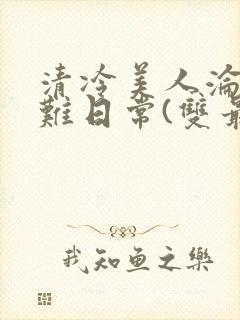 清冷美人淪
難日常(雙
我知魚之樂